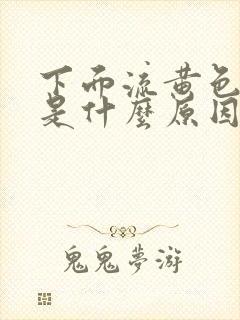 下而流黄色
是什麽原因
鬼鬼夢游